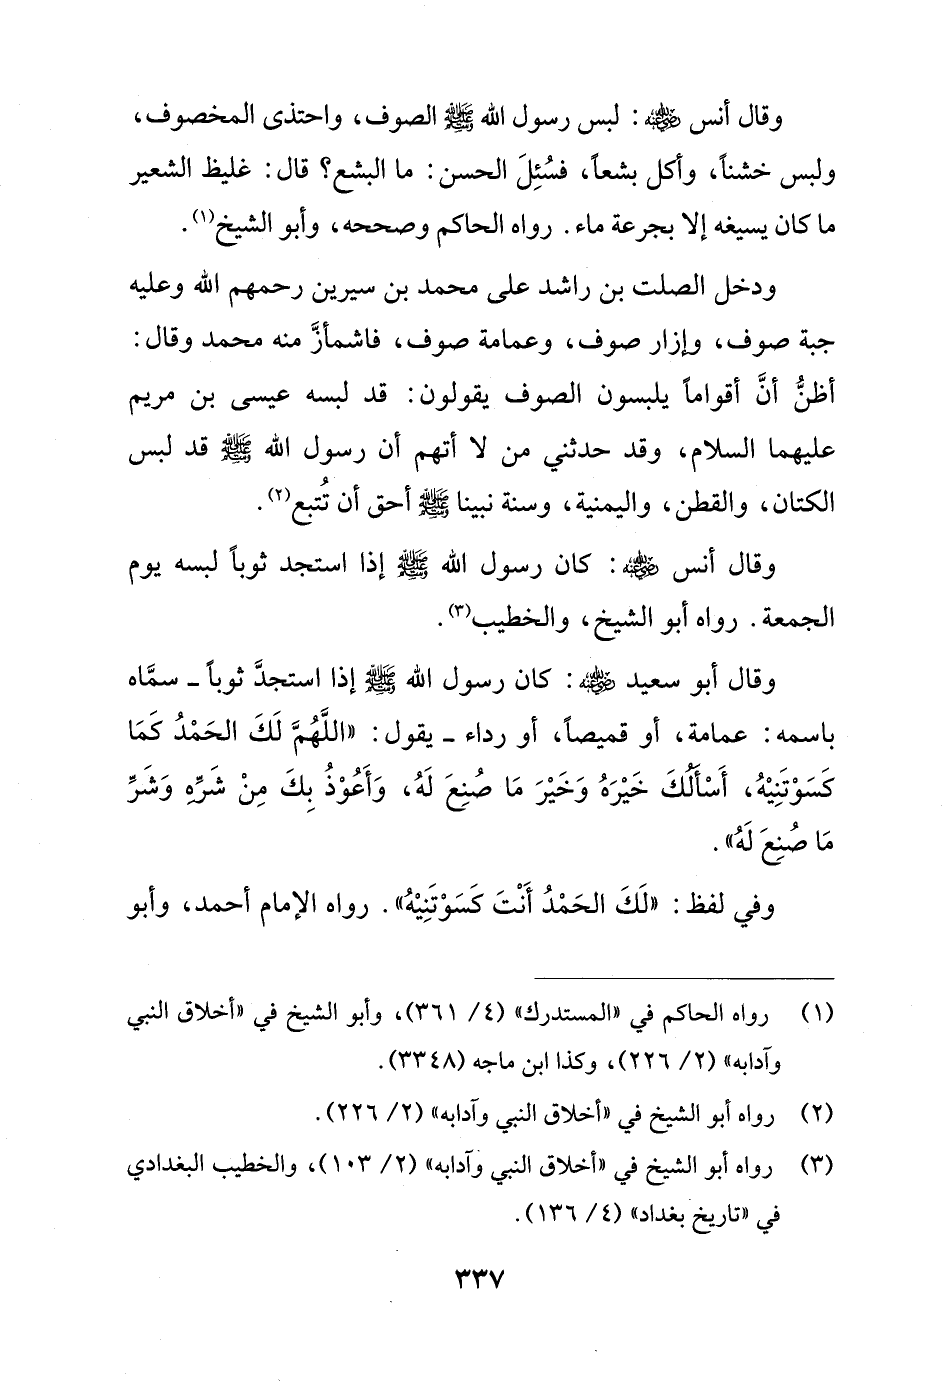 وقال أنس رضي الله عنه: لبس رسول الله ﷺ الصوف، واحتذى المخصوف،
ولبس خشناً، وأكل بشعاً، فسُئِلَ الحسن: ما البشع؟ قال: غليظ الشعير
ما كان يسيغه إلا بجرعة ماء. رواه الحاكم وصححه، وأبو الشيخ(١).
ودخل الصلت بن راشد على محمد بن سيرين رحمهم الله وعليه
جبة صوف، وإزار صوف، وعمامة صوف، فاشمأزَّ منه محمد وقال:
أظنُّ أنَّ أقواماً يلبسون الصوف يقولون: قد لبسه عيسى بن مريم
عليهما السلام، وقد حدثني من لا أتهم أن رسول الله ﷺ قد لبس
الكتان، والقطن، واليمنية، وسنة نبينا ﷺ أحق أن تُتبع(٢).
وقال أنس رضي الله عنه: كان رسول الله ﷺ إذا استجد ثوباً لبسه يوم
الجمعة. رواه أبو الشيخ، والخطيب(٣).
وقال أبو سعيد رضي الله عنه: كان رسول الله ﷺ إذا استجدَّ ثوباً ـ سمَّاه
باسمه: عمامة، أو قميصاً، أو رداء ـ يقول: «اللَّهُمَّ لَكَ الحَمْدُ كَمَا
كَسَوْتَنِيْهُ، أَسْأَلُكَ خَيْرَهُ وَخَيْرَ مَا صُنِعَ لَهُ، وَأَعُوْذُ بِكَ مِنْ شَرِّهِ وَشَرِّ
مَا صُنِعَ لَهُ».
وفي لفظ: «لَكَ الحَمْدُ أَنْتَ كَسَوْتَنِيْهُ». رواه الإمام أحمد، وأبو
(١) رواه الحاكم في «المستدرك» (٤/ ٣٦١)، وأبو الشيخ في «أخلاق النبي
وآدابه» (٢/ ٢٢٦)، وكذا ابن ماجه (٣٣٤٨).
(٢) رواه أبو الشيخ في «أخلاق النبي وآدابه» (٢/ ٢٢٦).
(٣) رواه أبو الشيخ في «أخلاق النبي وآدابه» (٢/ ١٠٣)، والخطيب البغدادي
في «تاريخ بغداد» (٤/ ١٣٦).
٣٣٧